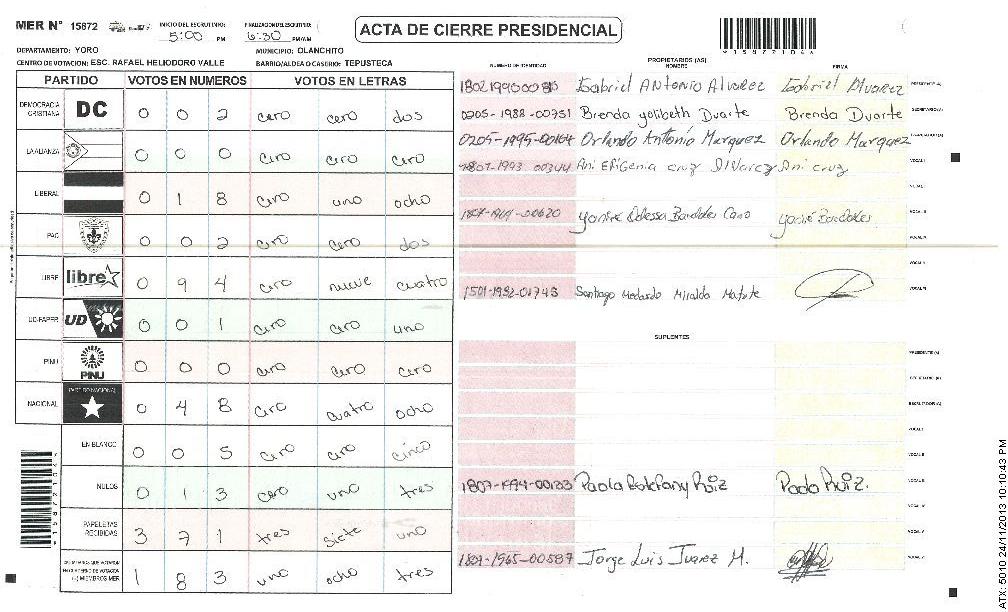 MER Nº 15872 INICIO DEL ESCRUTINIO: 5:00 PM FINALIZACION DEL ESCRUTINIO: 6:30 PM/AM
ACTA DE CIERRE PRESIDENCIAL
DEPARTAMENTO: YORO MUNICIPIO: OLANCHITO
CENTRO DE VOTACION: ESC. RAFAEL HELIODORO VALLE BARRIO/ALDEA O CASERIO: TEPUSTECA
PARTIDO VOTOS EN NUMEROS VOTOS EN LETRAS
DEMOCRACIA CRISTIANA DC 0 0 2 cero cero dos
LA ALIANZA 0 0 0 cero cero cero
LIBERAL 0 1 8 cero uno ocho
PAC 0 0 2 cero cero dos
LIBRE libre 0 9 4 cero nueve cuatro
UD-FAPER UD 0 0 1 cero cero uno
PINU PINU 0 0 0 cero cero cero
NACIONAL PARTIDO NACIONAL 0 4 8 cero cuatro ocho
EN BLANCO 0 0 5 cero cero cinco
NULOS 0 1 3 cero uno tres
PAPELETAS RECIBIDAS 3 7 1 tres siete uno
MIEMBROS MER 1 8 3 uno ocho tres
PROPIETARIOS (AS)
NUMERO DE IDENTIDAD NOMBRE FIRMA
Gabriel ANTONIO Alvarez Gabriel Alvarez PRESIDENTE(A)
0205-1988-00731 Brenda yolibeth Duarte Brenda Duarte SECRETARIO(A)
0205-1995-00164 Orlando Antonio Marquez Orlando Marquez
1807-1993 00344 Ani Efigenia cruz Ani cruz VOCAL I
Yaniré Odessa Bardales Cano Yaniré Bardales
1501-1982-01743 Santiago Medardo Miralda Matute
SUPLENTES
PRESIDENTE(A)
SECRETARIO(A)
ESCRUTADOR(A)
1807-1994-00133 Paola Estefany Ruiz Paola Ruiz.
1809-1965-00587 Jorge Luis Juarez M.
ATX: 5010 24/11/2013 10:10:43 PM